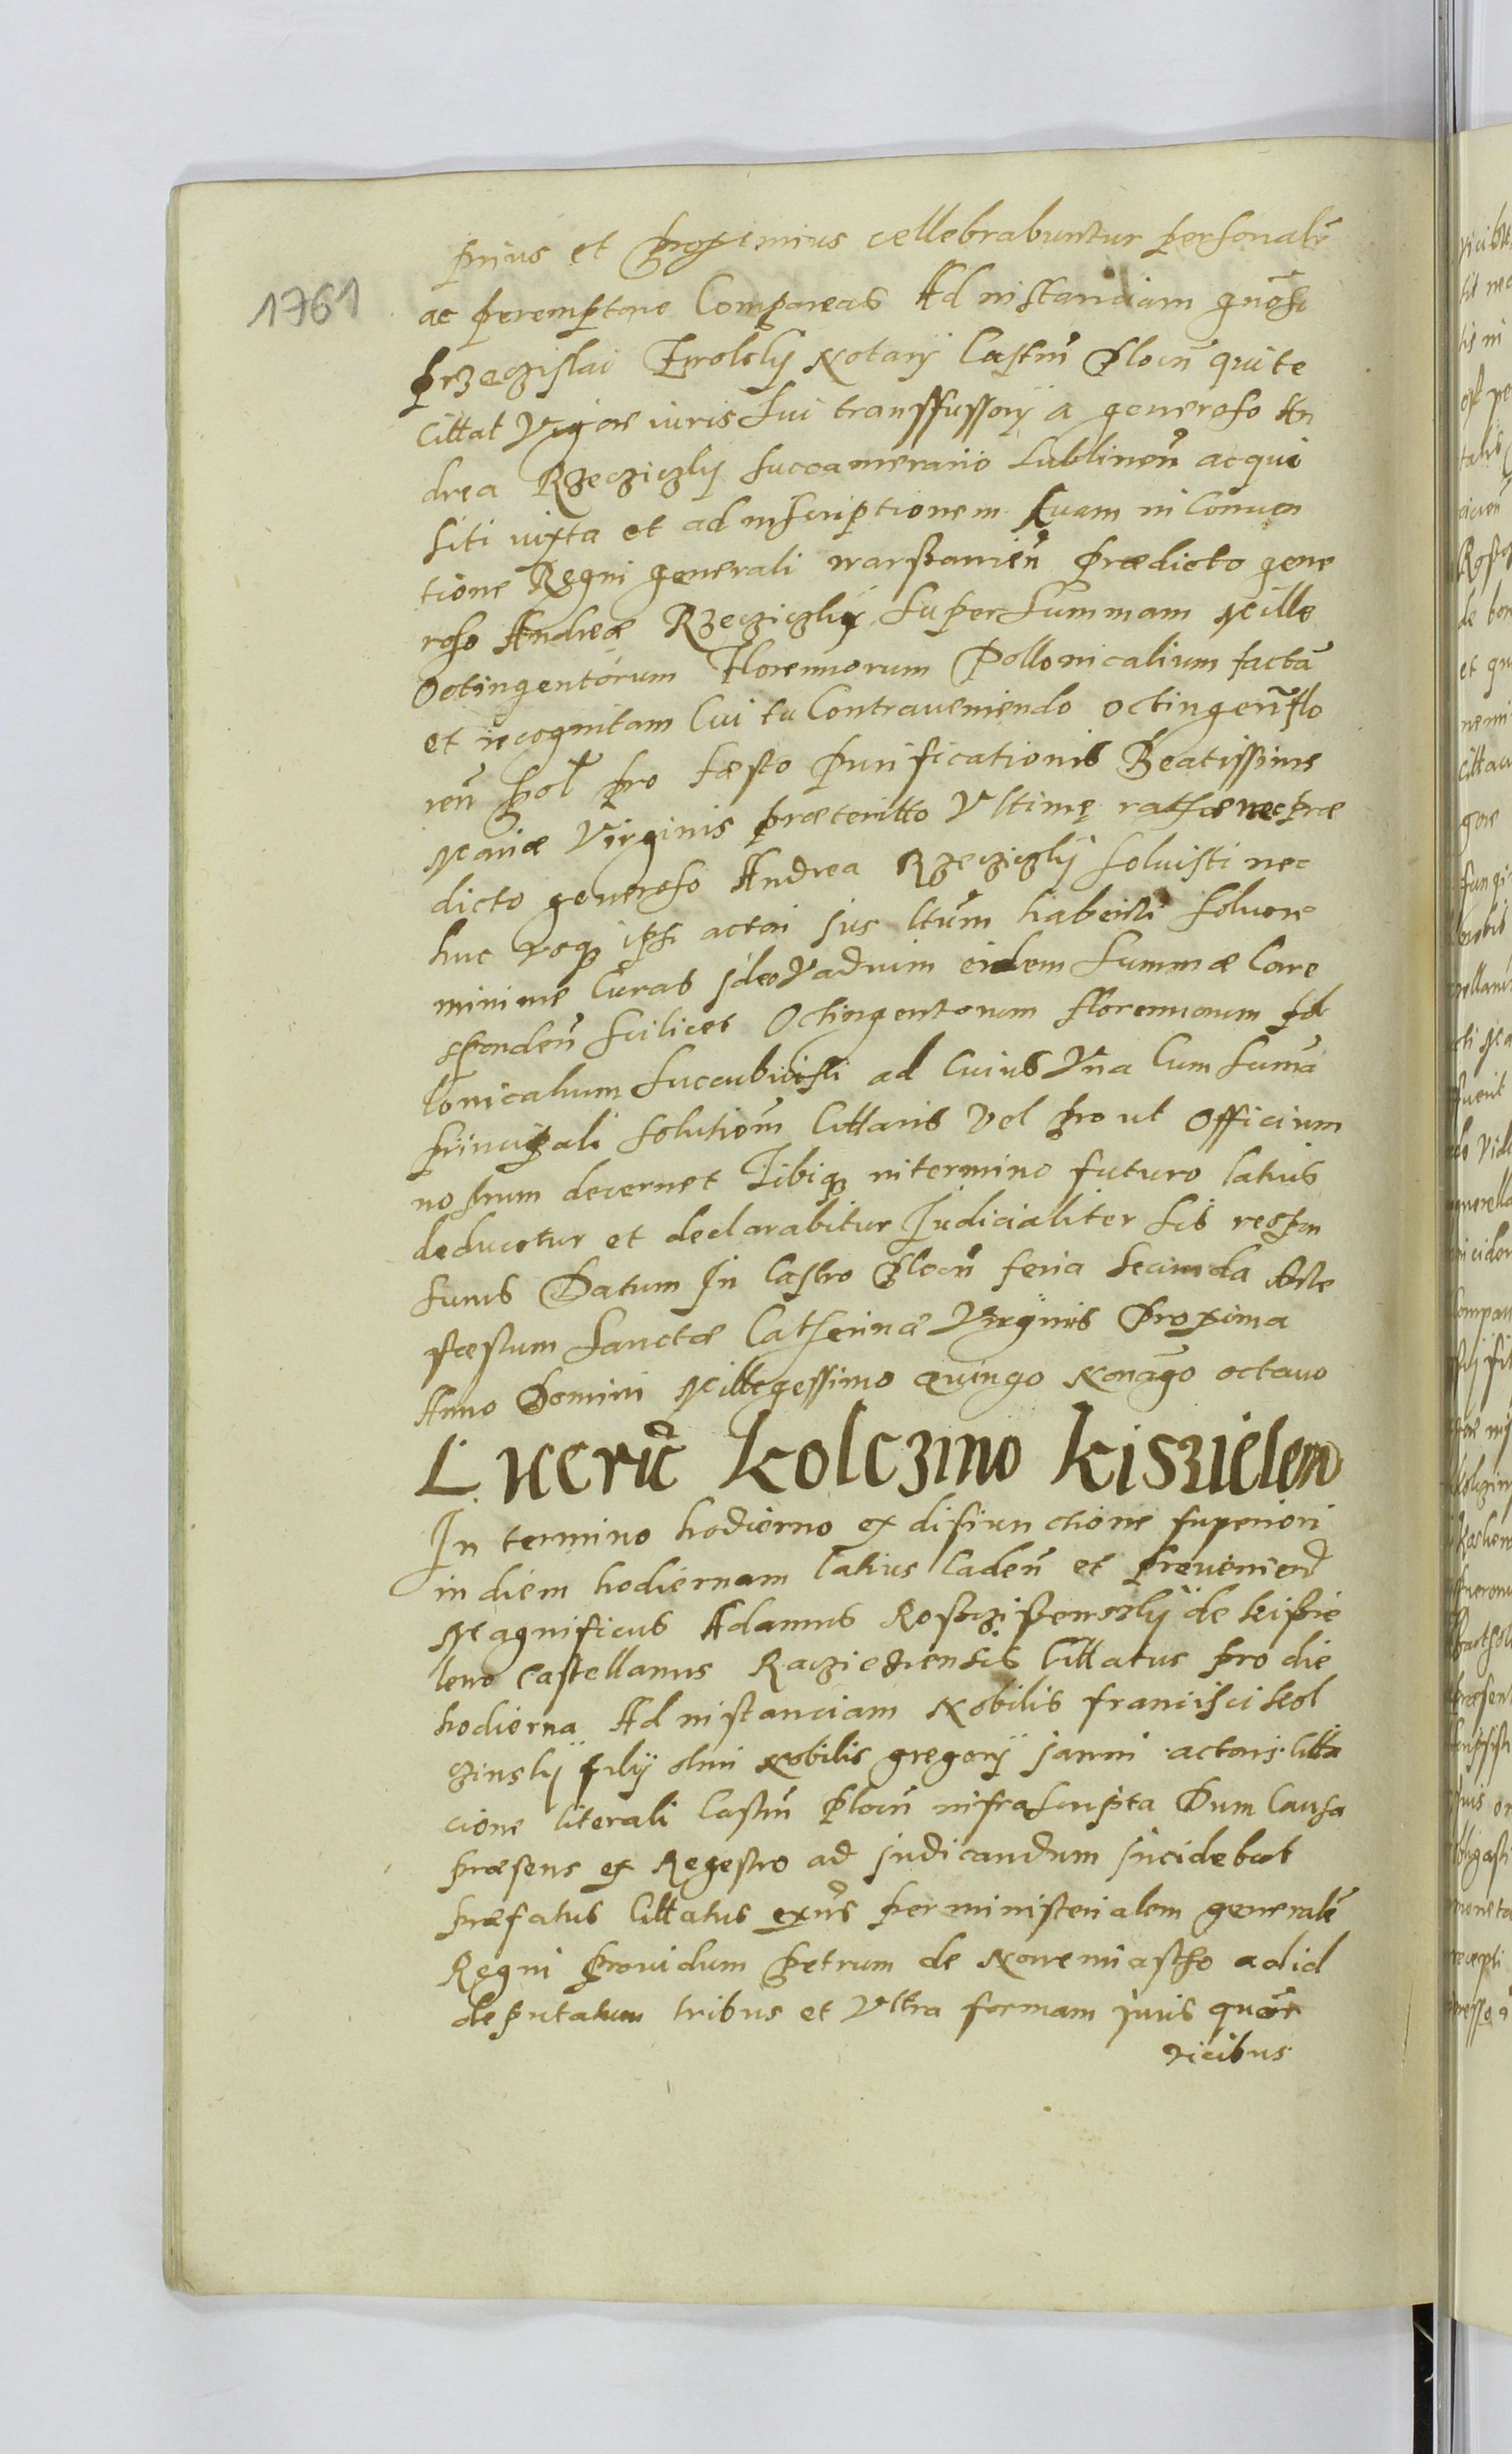 1761
prius et propemius cellebrabuntur personalr̃
ac peremptorie Compareas Ad instanciam gnõsi
Przeczislai Notarÿ Castrñ Plocñ qui te
Cittat Vigore iuris sui transffussorÿ a generoso An
drea Rzecziczkÿ succamerario Lublinen̄ acqui
siti iuxta et ad inscriptionem suam in Conuen
tione Regni generali warszauien̄ prædicto gene
roso Andreæ Rzecziczkÿ super summam Mille
Octingentorum Florennorum Pollonicalium factã
et recognitam Cui tu Contraueniendo octingen̄ flo
ren̄ pol pro fæsto purificationis Beatissime
Mariæ Virginis præteritto Vltimę rathæ nec præ
dicto generoso Andrea Rzecziczkÿ soluisti nec
huc vsqȝ ipsi actori jus ltũm habenti soluere
minime Curas Ideo Vadium eidem summæ Core
sponden̄ scilicet Octingentorum florennorum pol
lonicalium succubuisti ad Cuius Vna Cum suma
principali solutiom̄ Cittaris Vel prout Officium
nostrum decernet Tibiqȝ in termino futuro latius
deducetur et declarabitur Judicialiter sis respon
surus Datum In Castro Plocn̄ feria secunda Ante
fæstum sanctæ Catherinæ Virginis Proxima
Anno Domini Millegessimo quingo Nonag̃o octauo
L kolczino kiszielewo
In termino hodierno ex disiunctione superiori
in diem hodiernam latius Caden̄ et proueniend
Magnificus Adamus de kiszie
lewo Castellanus Raczięzensis Cittatus pro die
hodierna Ad instanciam Nobilis francisci kol
czinskÿ filÿ olim Nobilis gregorÿ Janni actoris Citta
cione literali Castrn̄ Plocn̄ infrascripta Dum Causa
præsens ex Regestro ad judicandum incidebat
præfatus Cittatus exñs per ministerialem generalẽ
Regni prouidum Petrum de Nowemiastho ad id
deputatum tribus et Vltra formam juris quãr
vicibus